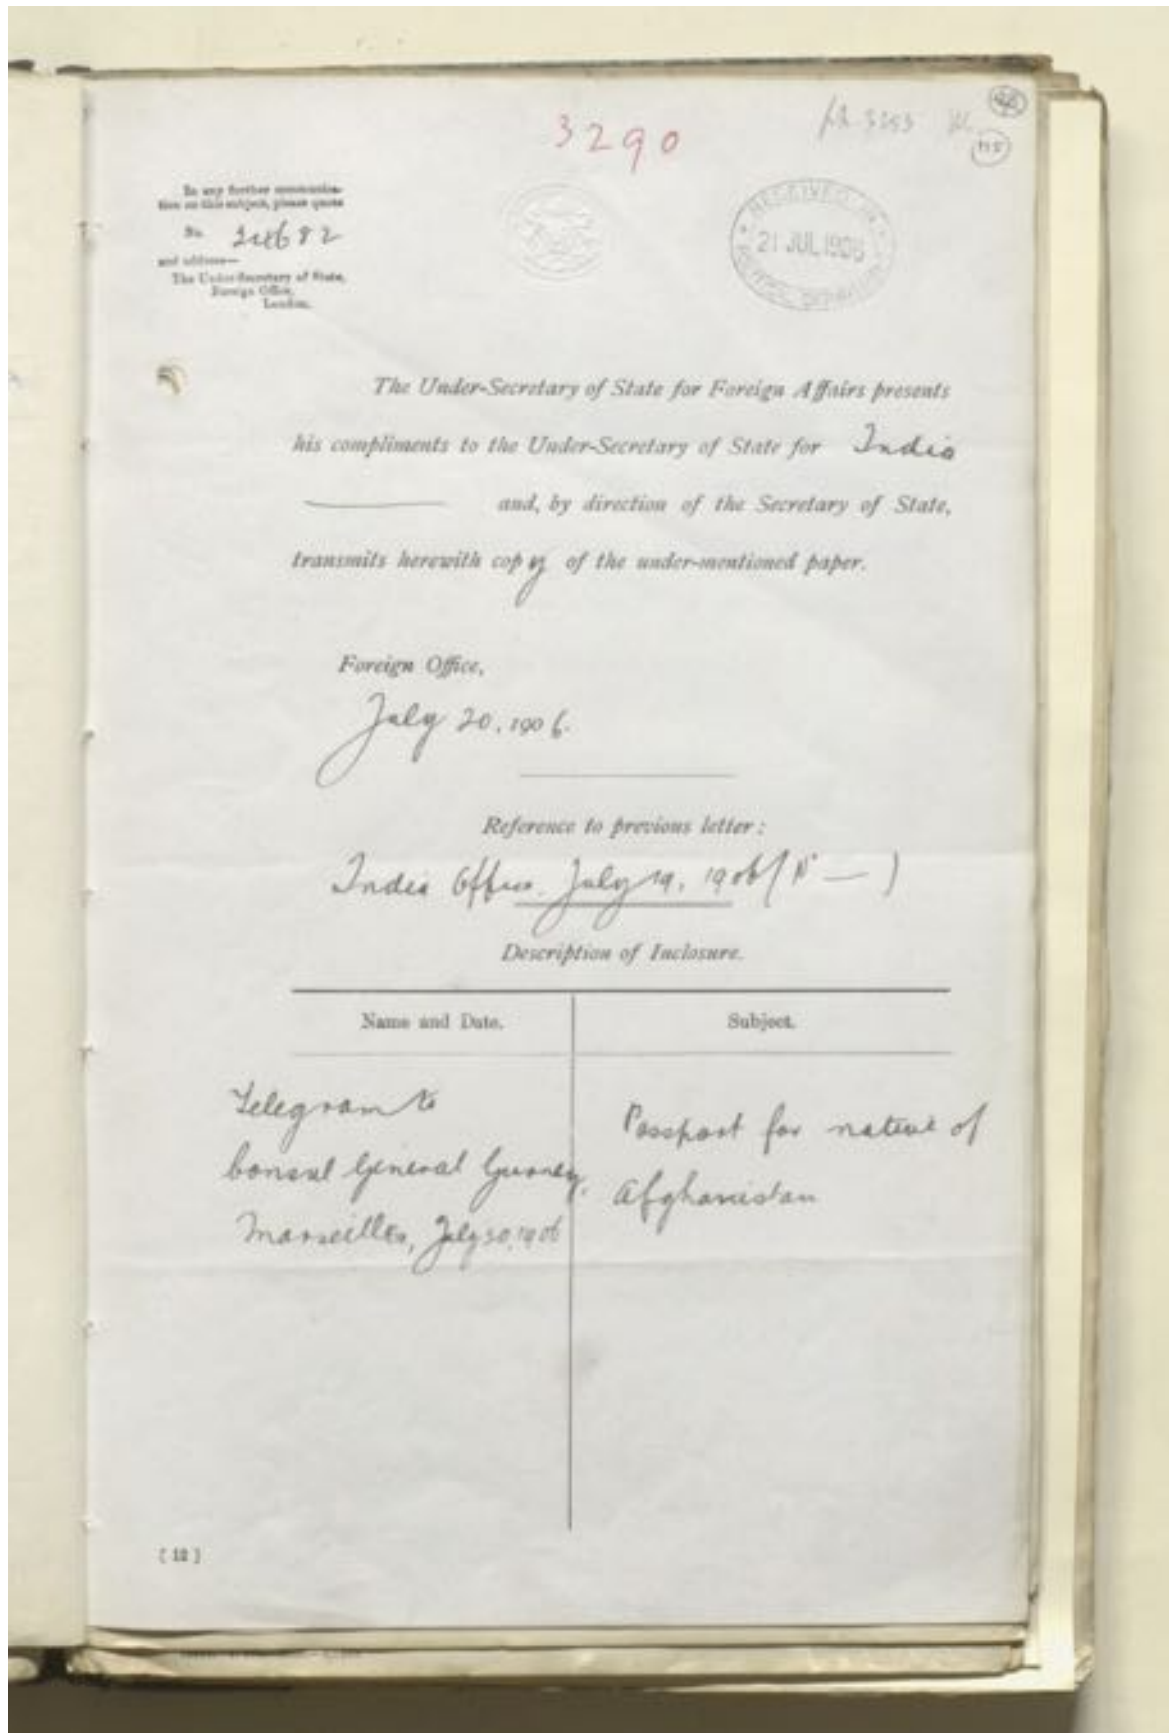 3290
115
In any further communica-
tion on this subject, please quote
No. 24682
and address—
The Under-Secretary of State,
Foreign Office,
London.
RECEIVED IN
21 JUL 1906
POLITICAL DEPARTMENT
The Under-Secretary of State for Foreign Affairs presents
his compliments to the Under-Secretary of State for India
and, by direction of the Secretary of State,
transmits herewith copy of the under-mentioned paper.
Foreign Office,
July 20, 1906.
Reference to previous letter:
India Office, July 19, 1906 ( — )
Description of Inclosure.
Name and Date.
Subject.
Telegram to
Consul General Gurney,
Marseilles, July 20, 1906
Passport for native of
Afghanistan
[12]